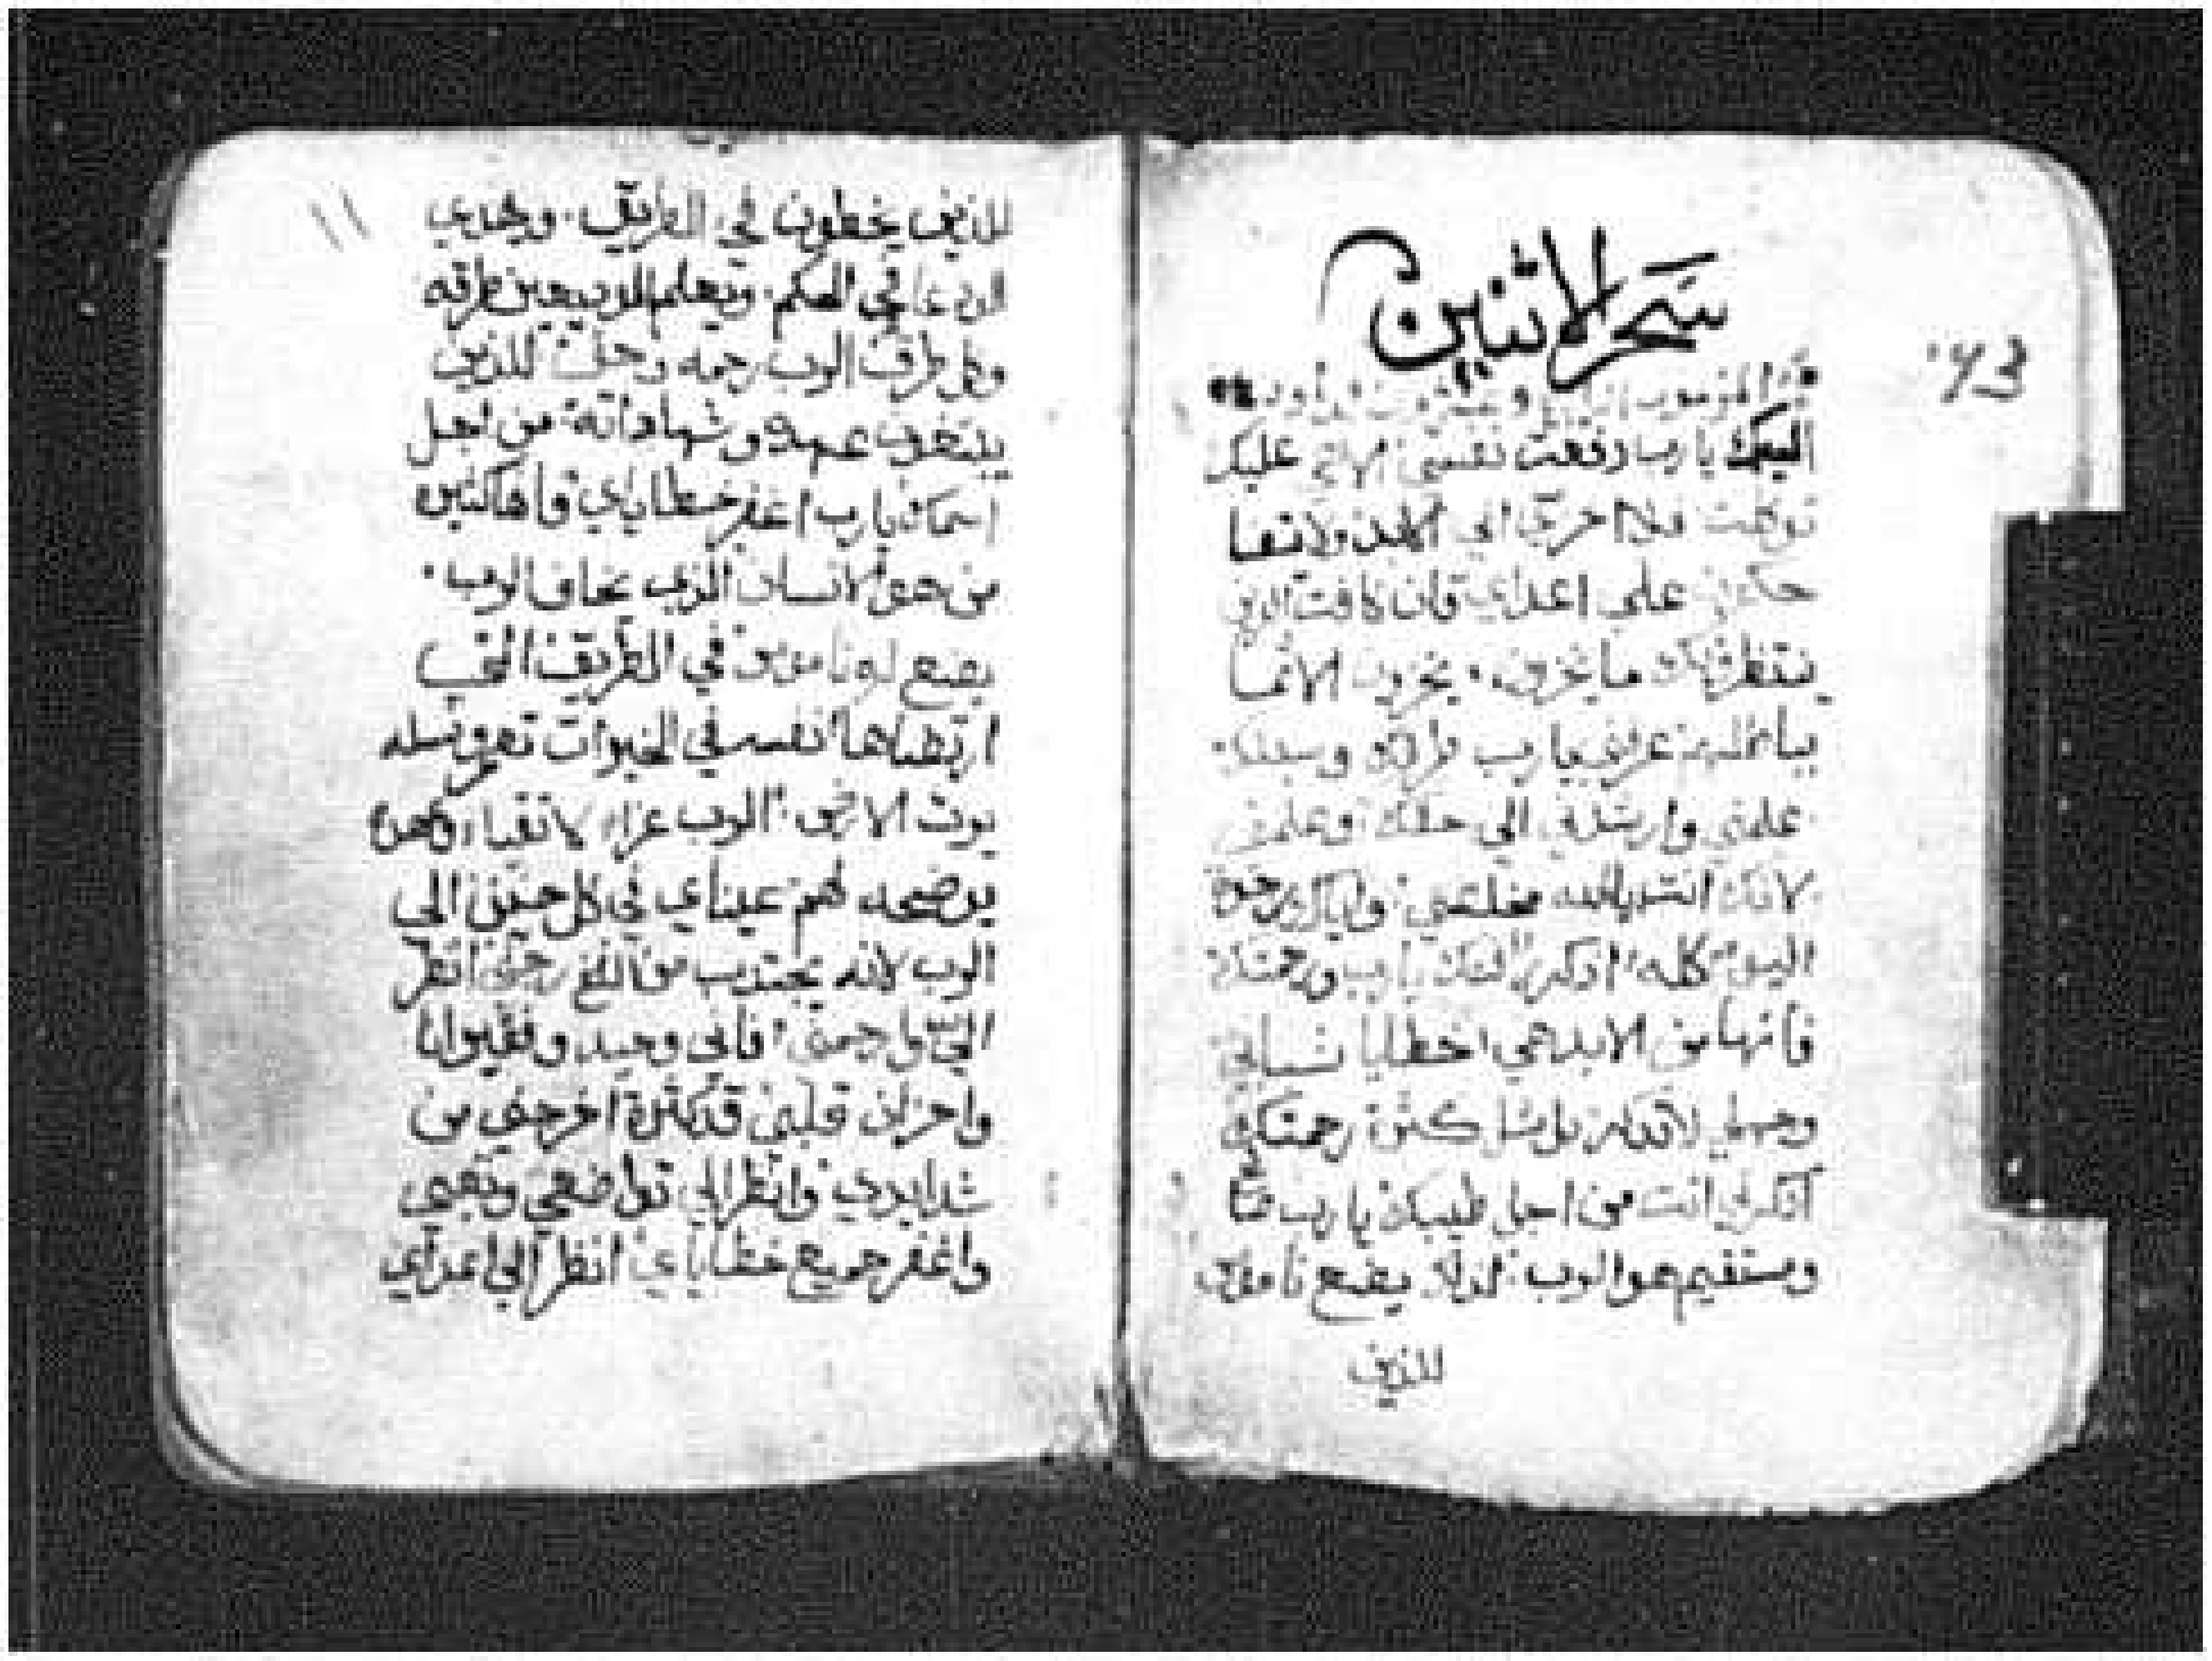 سَحَر الاثنين
٧٣
المزمور وعشرون داود
اليك يارب رفعت نفسي الاهي عليك
توكلت فلا اخزي الي الابد ولا تضا
حك بي علي اعداي فان كافت الذين
ينتظرونك ما يخزون. يخزون الاثما
بباطلهم عرفني يا رب طرقك وسبلك.
علمني وارشدني الي حقك وعلمني
لانك انت يا الله مخلصي واياك رجوة
اليوم كله اذكر رافتك يا رب ورحمتك
فانها من الابد هي خطايا شبابي
وجهلي لا تذكر بل مثل كثرة رحمتك
اذكرني انت من اجل طيبك يا رب
ومستقيم هو الرب لذلك يضع ناموس
للذين
١١
للذين يخطون في الطريق. ويهدي
الودعا في الحكم. ويعلم الوديعين طرقه
وكل طرق الرب رحمه وحق للذين
يبتغون عهده وشهاداته من اجل
اسمك يا رب اغفر خطاياي فانها كثيره
من هو الانسان الذي يخاف الرب.
يضع له ناموس في الطريق التي
ارتضاها نفسه في الخيرات تحل ونسله
يرث الارض. الرب عزا لاتقياه وعهده
يوضحه لهم عيناي في كل حين الي
الرب لانه يجتذب من الفخ رجلي انظر
الي وارحمني فاني وحيد وفقير انا
واحزان قلبي قد كثرة اخرجني من
شدايدي وانظر الي تواضعي وتعبي
واغفر جميع خطاياي انظر الي اعداي